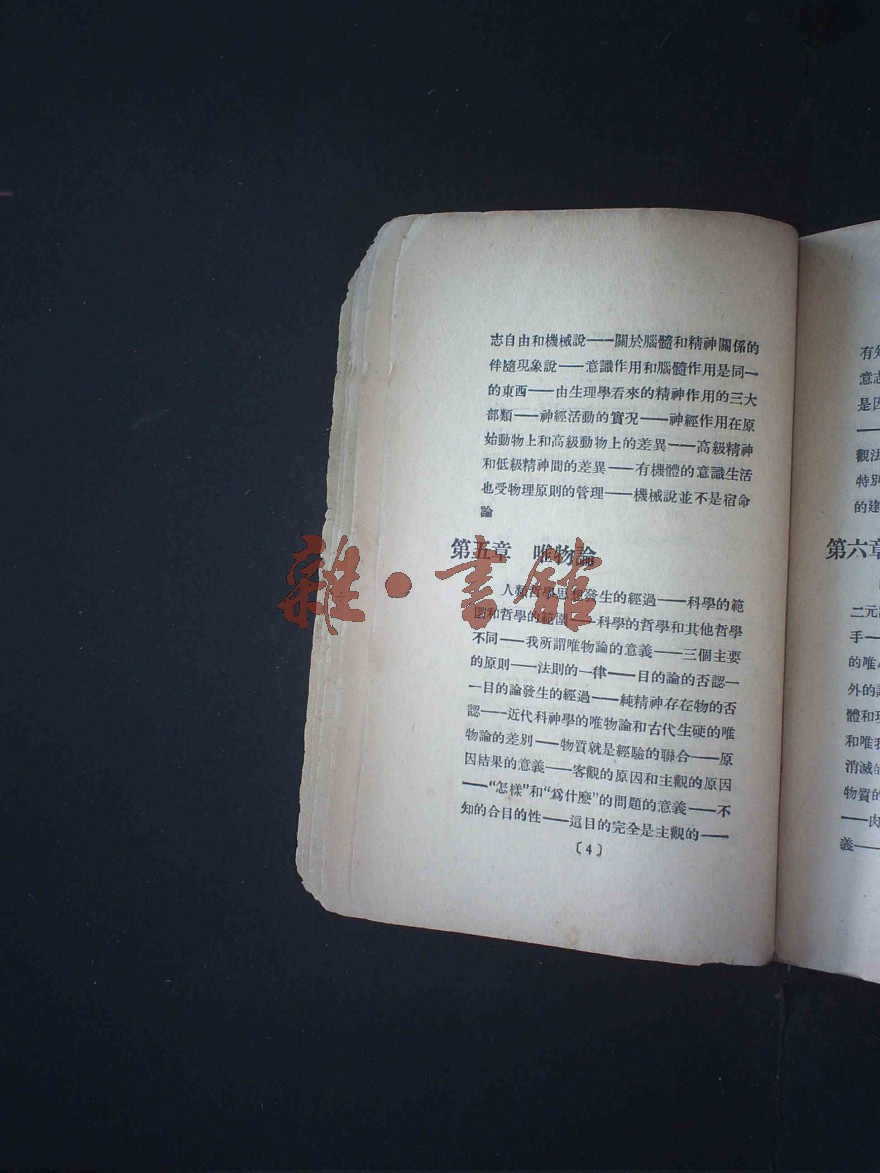 志自由和機械說——關於腦髓和精神關係的
伴隨現象說——意識作用和腦髓作用是同一
的東西——由生理學看來的精神作用的三大
部類——神經活動的實况——神經作用在原
始動物上和高級動物上的差異——高級精神
和低級精神間的差異——有機體的意識生活
也受物理原則的管理——機械說並不是宿命
論
第五章 唯物論
人類哲學思想發生的經過——科學的範
圍和哲學的範圍——科學的哲學和其他哲學
不同——我所謂唯物論的意義——三個主要
的原則——法則的一律——目的論的否認—
—目的論發生的經過——純精神存在物的否
認——近代科神學的唯物論和古代生硬的唯
物論的差別——物質就是經驗的聯合——原
因結果的意義——客觀的原因和主觀的原因
——“怎樣”和“爲什麽”的問題的意義——不
知的合目的性——這目的完全是主觀的——
〔4〕
雜·書館
有知
意志
是因
——
觀法
特別
的建
第六章
二元論
手——
的唯心
外的
體和現
和唯我
消滅的
物質的
——肉
義——